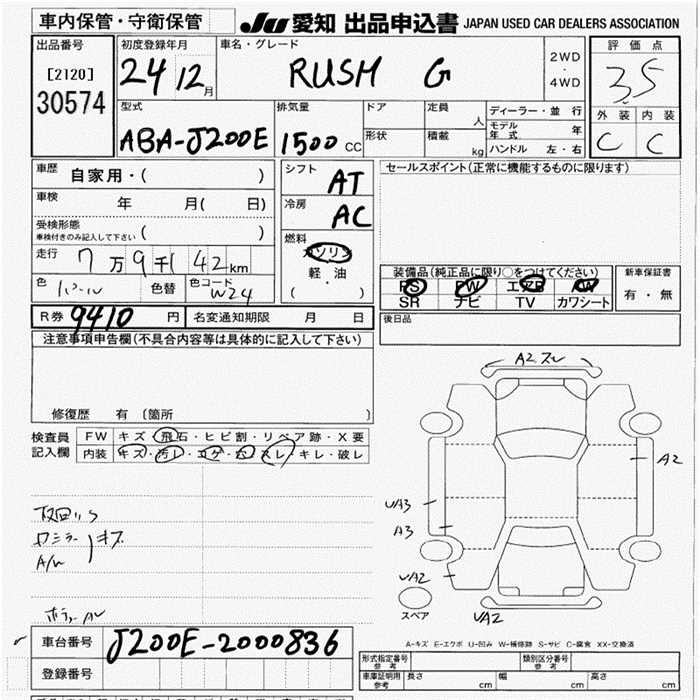 車内保管・守衛保管
JU 愛知 出品申込書 JAPAN USED CAR DEALERS ASSOCIATION
出品番号
[2120]
30574
初度登録年月
24 12月
車名・グレード
RUSH G
2WD
・
4WD
評価点
3.5
外装 内装
C C
型式
ABA-J200E
排気量
1500 CC
ドア
形状
定員 人
積載 kg
ディーラー・並行
モデル年式 年
ハンドル 左・右
車歴
自家用・( )
車検 年 月( 日)
受検形態
車検付きのみ記入して下さい ( )
走行 7万9千142km
色 色替
色コード W24
シフト AT
冷房 AC
燃料
ガソリン
軽油
・
( )
セールスポイント(正常に機能するものに限ります)
装備品(純正品に限り○をつけてください)
PS PW エアB AW
SR ナビ TV カワシート
新車保証書
有・無
後日品
R券 9410 円
名変通知期限 月 日
注意事項申告欄(不具合内容等は具体的に記入して下さい)
修復歴 有 〔箇所 〕
検査員
記入欄
FW キズ・飛石・ヒビ割・リペア跡・X要
内装 キズ・汚レ・コゲ・穴・スレ・キレ・破レ
キズ
A/W
A2 スレ
A2
UA3
A3
UA2
UA2
スペア
A-キズ E-エクボ U-凹み W-補修跡 S-サビ C-腐食 XX-交換済
車台番号 J200E-2000836
登録番号
形式指定番号
参考
類別区分番号
参考
車庫証明用
参考
長さ cm
幅 cm
高さ cm